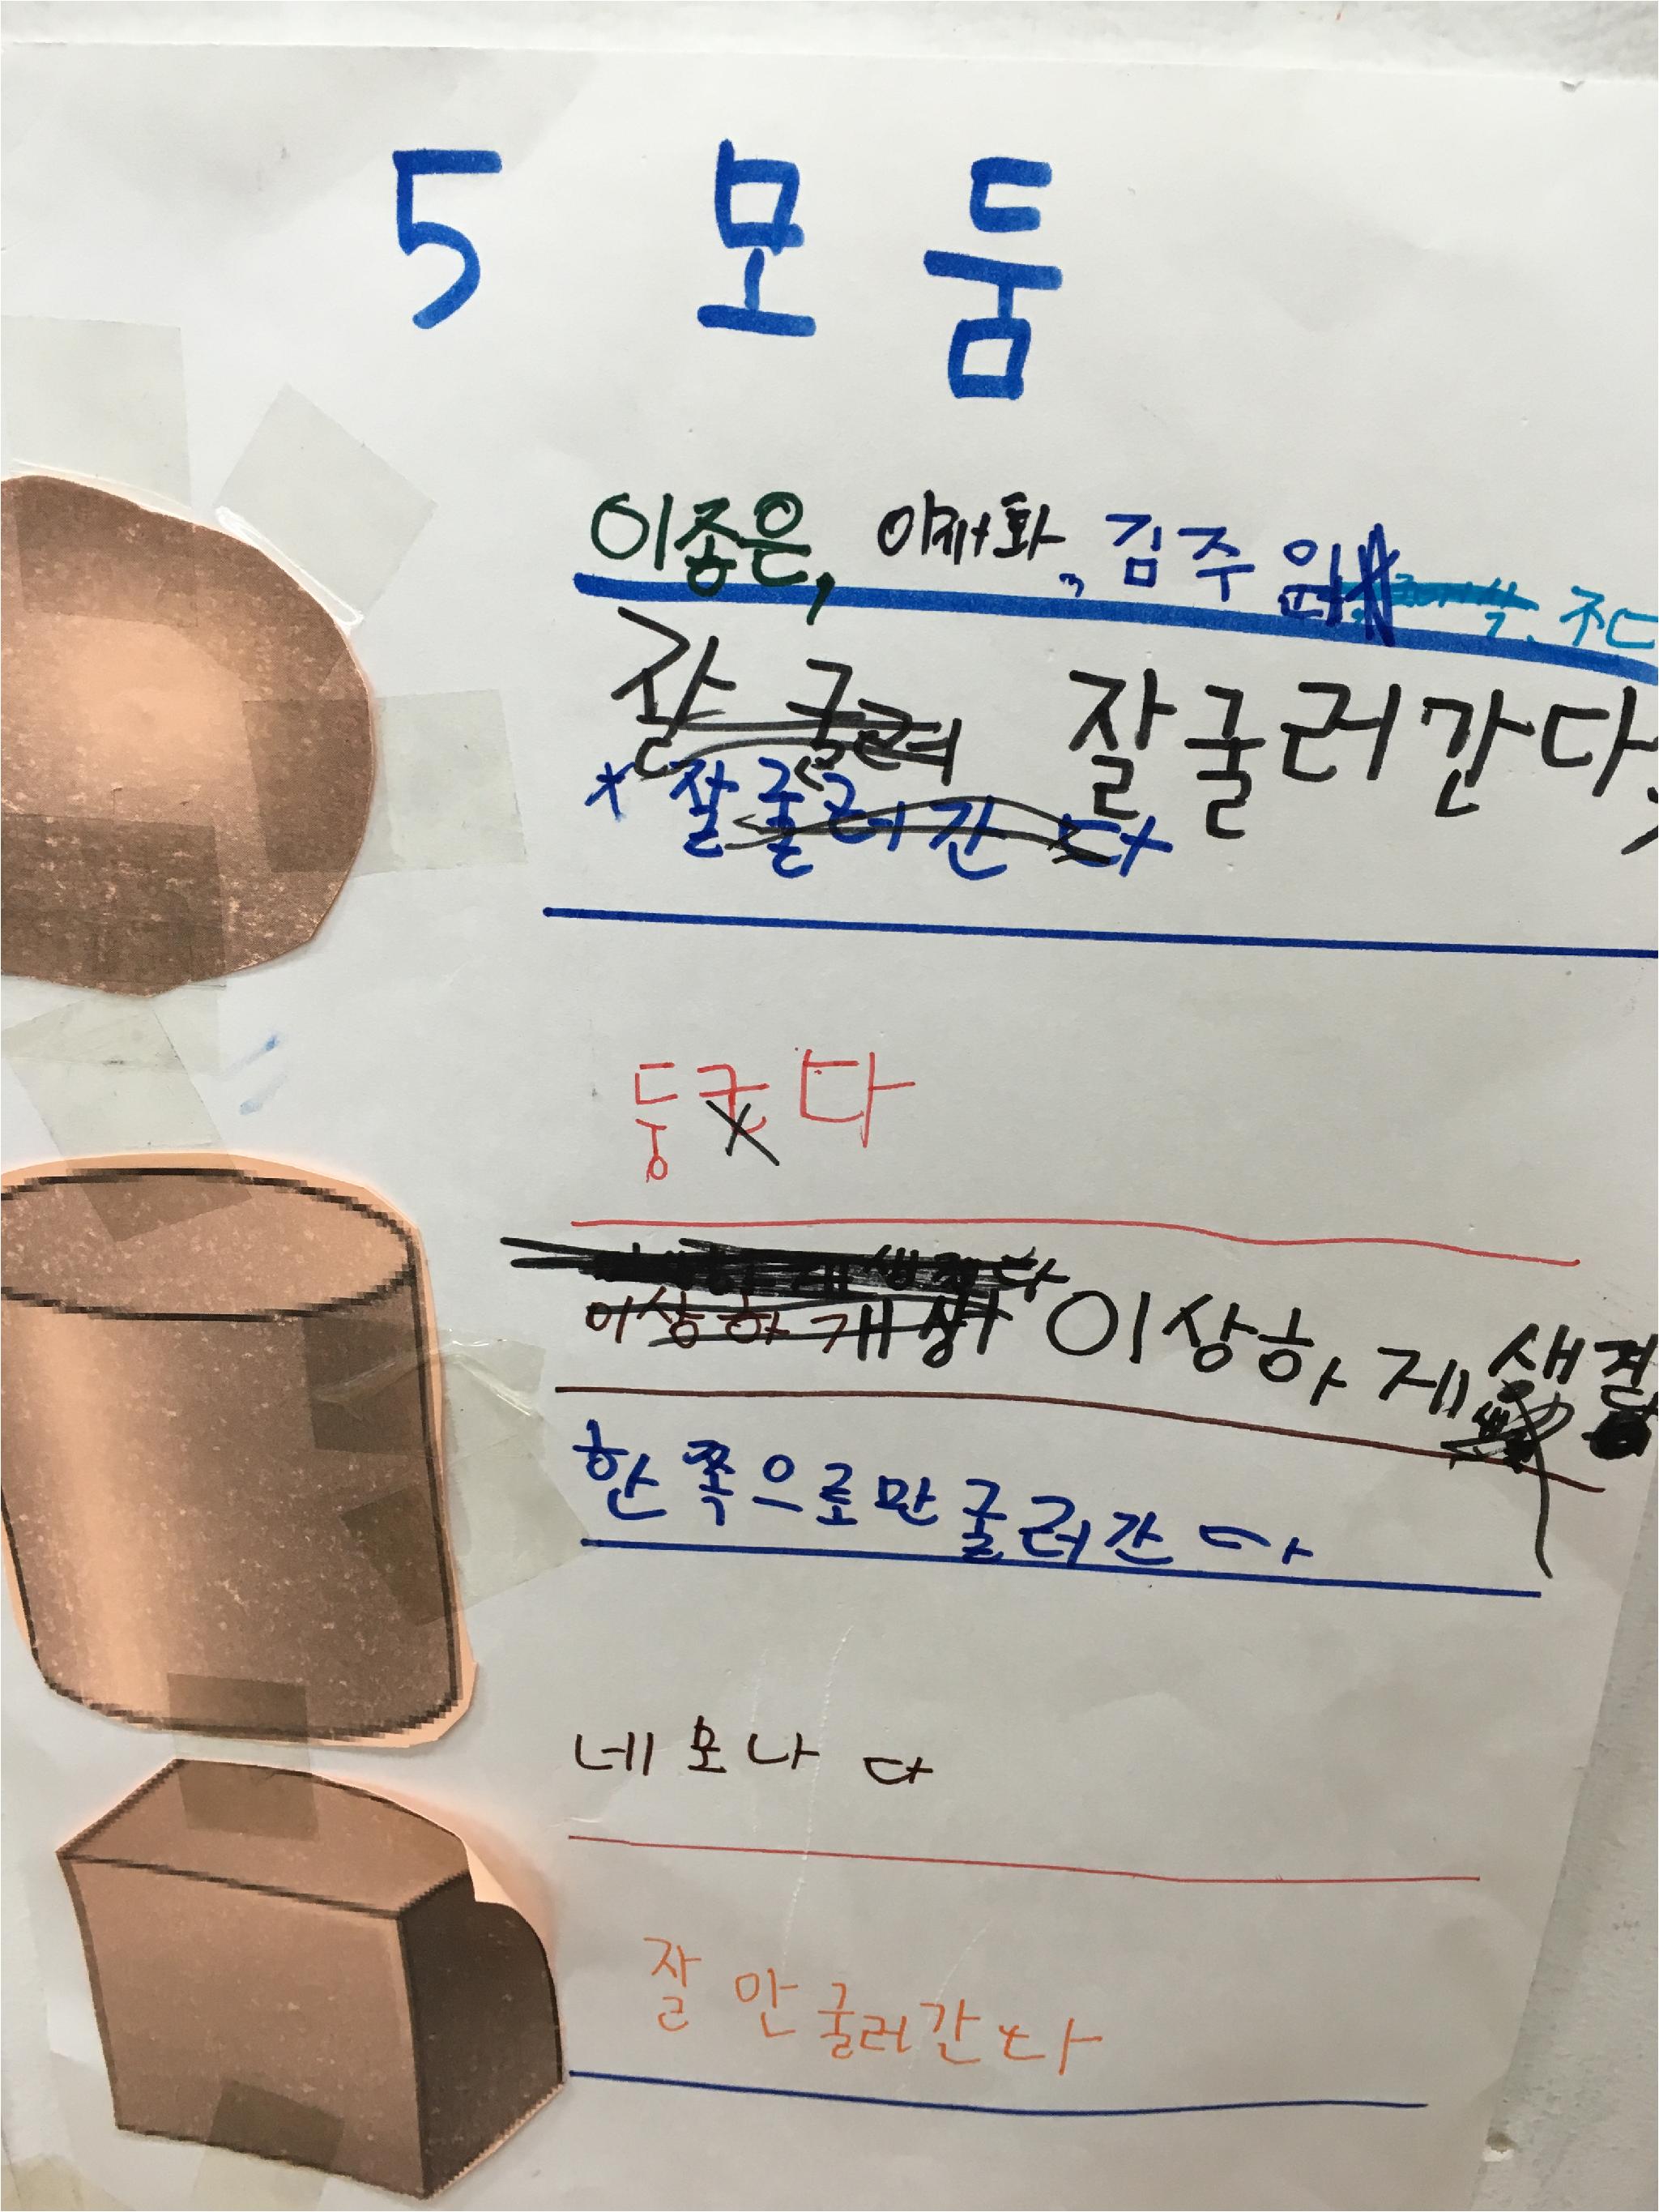 5 모둠
이종은, 이채화, 김주원
잘 굴러 잘굴러간다
* 잘굴러간다
둥근다
이상하개 이상하게 생겼
한쪽으로만굴러간다
네모나다
잘 안굴러간다